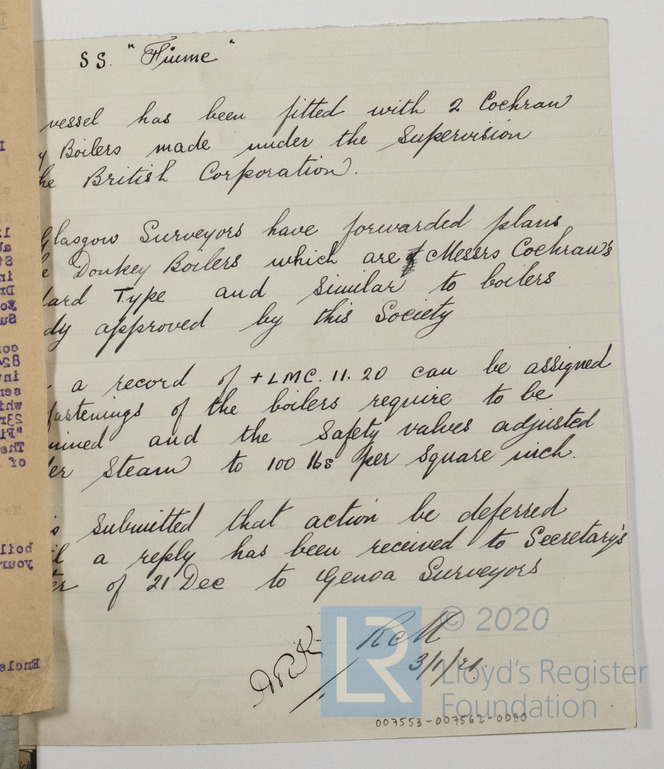 SS. "Fiume"
vessel has been fitted with 2 Cochran
y Boilers made under the Supervision
he British Corporation.
Glasgow Surveyors have forwarded plans
e Donkey Boilers which are of Messrs Cochran's
dard Type and similar to boilers
dy approved by this Society
a record of +LMC. 11. 20 can be assigned
fastenings of the boilers require to be
mined and the Safety valves adjusted
er Steam to 100 lbs per square inch.
is submitted that action be deferred
il a reply has been received to Secretary's
ter of 21 Dec to Genoa Surveyors
ARK
3/1/21
LR
© 2020
Lloyd's Register
Foundation
007553-007562-0080